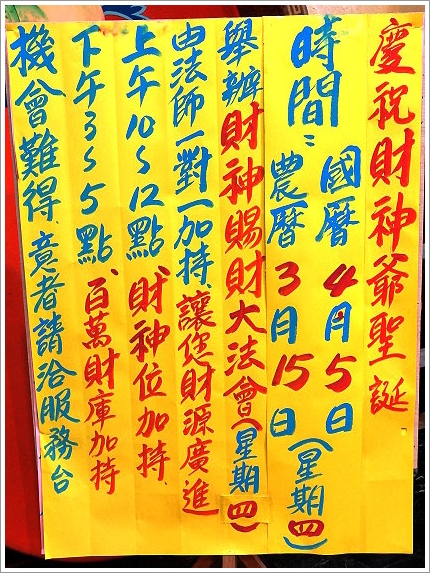 慶祝財神爺聖誕
時間：國曆4月5日（星期四）
農曆3月15日
舉辦財神賜財大法會（星期四）
由法師一對一加持、讓您財源廣進
上午10～12點、財神位加持
下午3～5點、百萬財庫加持
機會難得、意者請洽服務台